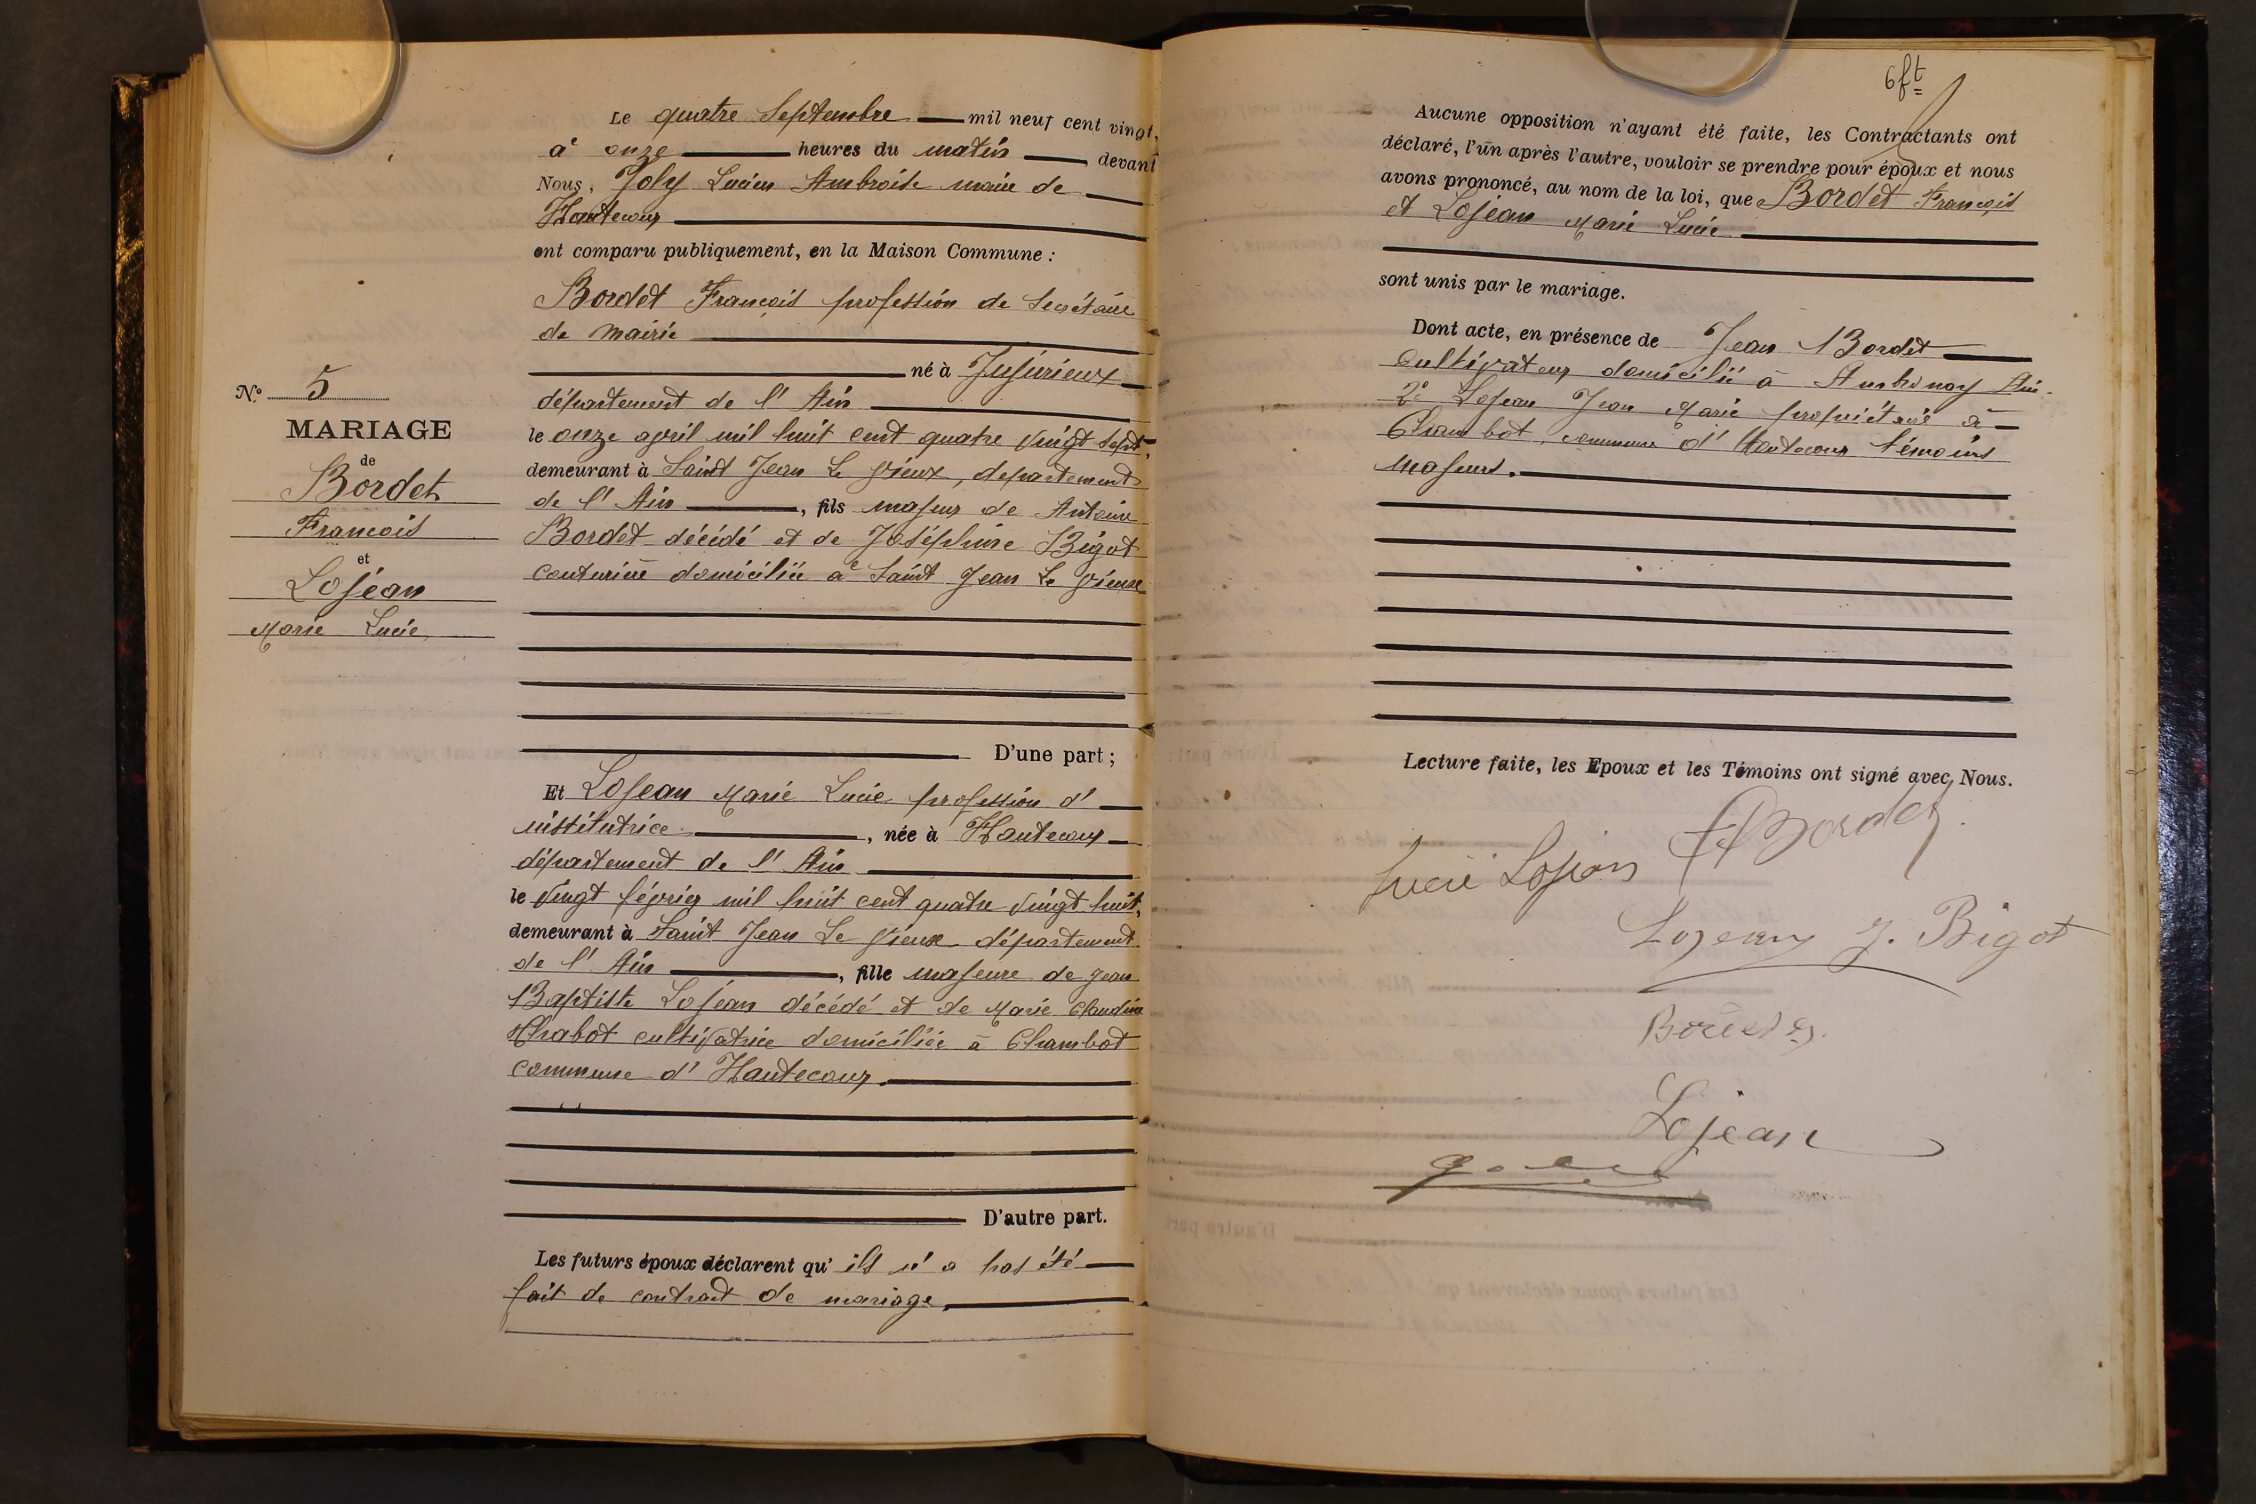 N.º 5
MARIAGE
de
Bordet
François
et
Lojéan
Marie Lucie
Le quatre Septembre mil neuf cent vingt,
à onze heures du matin devant
Nous, Joly Lucien Ambroise maire de
Hautecour
ont comparu publiquement, en la Maison Commune :
Bordet François profession de Secrétaire
de Mairie
né à Jujurieux
département de l'Ain
le onze avril mil huit cent quatre vingt sept,
demeurant à Saint Jean Le Vieux, département
de l'Ain, fils majeur de Antoine
Bordet décédé et de Joséphine Bigot
couturière domiciliée à Saint Jean Le Vieux
D'une part ;
Et Lojean Marie Lucie profession d'
institutrice, née à Hautecour
département de l'Ain
le vingt février mil huit cent quatre vingt huit,
demeurant à Saint Jean Le Vieux département
de l'Ain, fille majeure de Jean
Baptiste Lojéan décédé et de Marie Claudine
Chabot cultivatrice domiciliée à Chambot
commune d'Hautecour
D'autre part.
Les futurs époux déclarent qu'ils n'a pas été
fait de contrat de mariage
6ft
Aucune opposition n'ayant été faite, les Contractants ont
déclaré, l'un après l'autre, vouloir se prendre pour époux et nous
avons prononcé, au nom de la loi, que Bordet François
et Lojéan Marie Lucie
sont unis par le mariage.
Dont acte, en présence de Jean Bordet
Cultivateur domicilié à Ambronay Ain.
2º Lojean Jean Marie propriétaire à
Chambot, commune d'Hautecour témoins
majeurs.
Lecture faite, les Epoux et les Témoins ont signé avec Nous.
Lucie Lojean FBordet
Lojean J. Bigot
Lojean